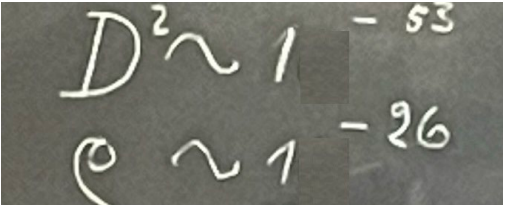 D² ~ 1 ⁻⁵³
ρ ~ 1 ⁻²⁶